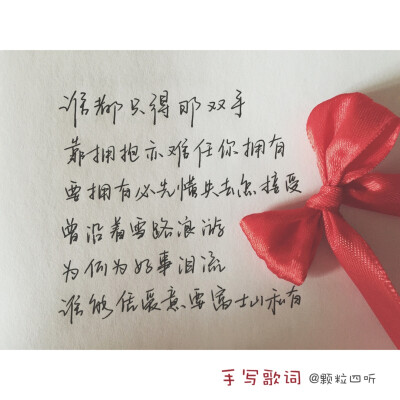 谁都只得那双手
靠拥抱亦难任你拥有
要拥有必先懂失去怎接受
曾沿着雪路浪游
为何为好事泪流
谁能凭爱意要富士山私有
手写歌词 @颗粒四听